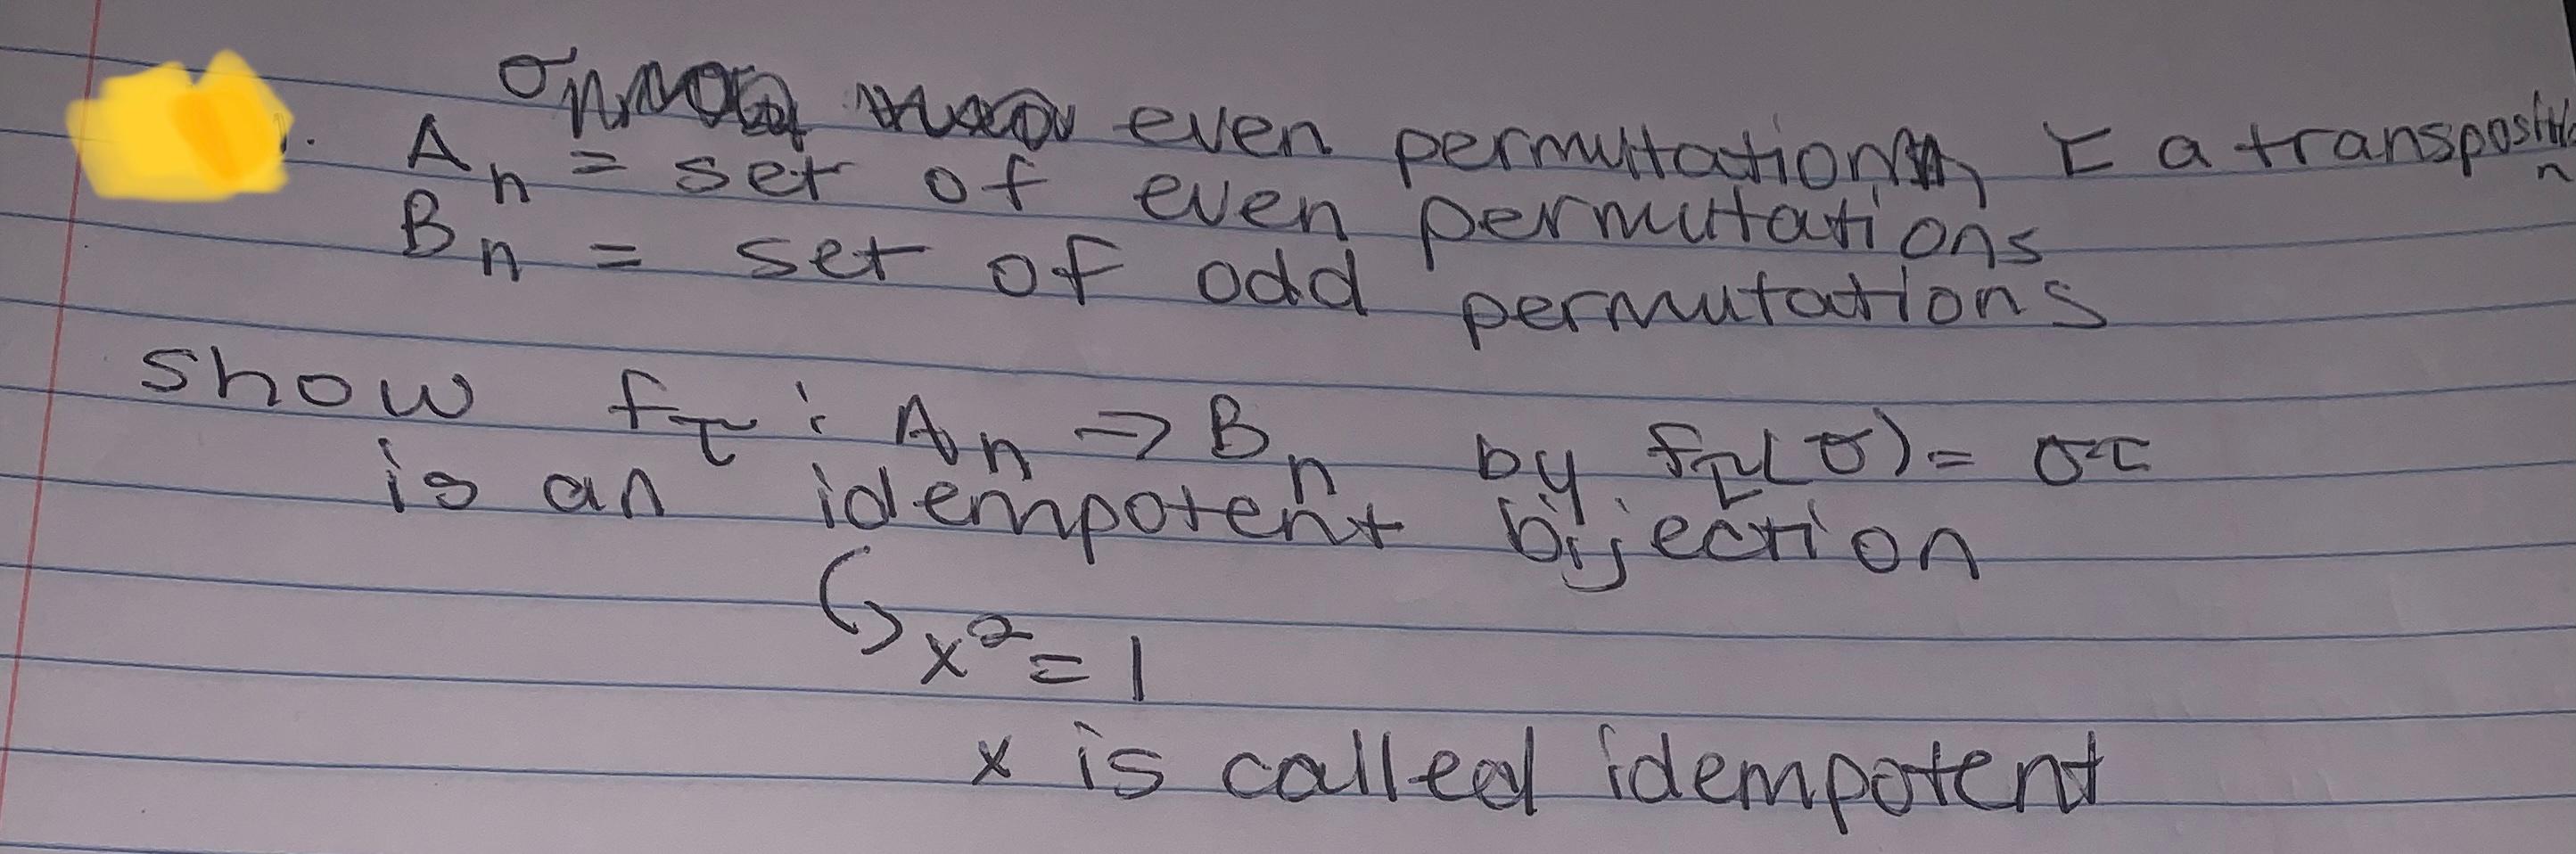 σ even permutation, τ a transposition
1. An = set of even permutations
Bn = set of odd permutations
show fτ : An → Bn by fτ(σ) = στ
is an idempotent bijection
↳ x² = 1
x is called idempotent